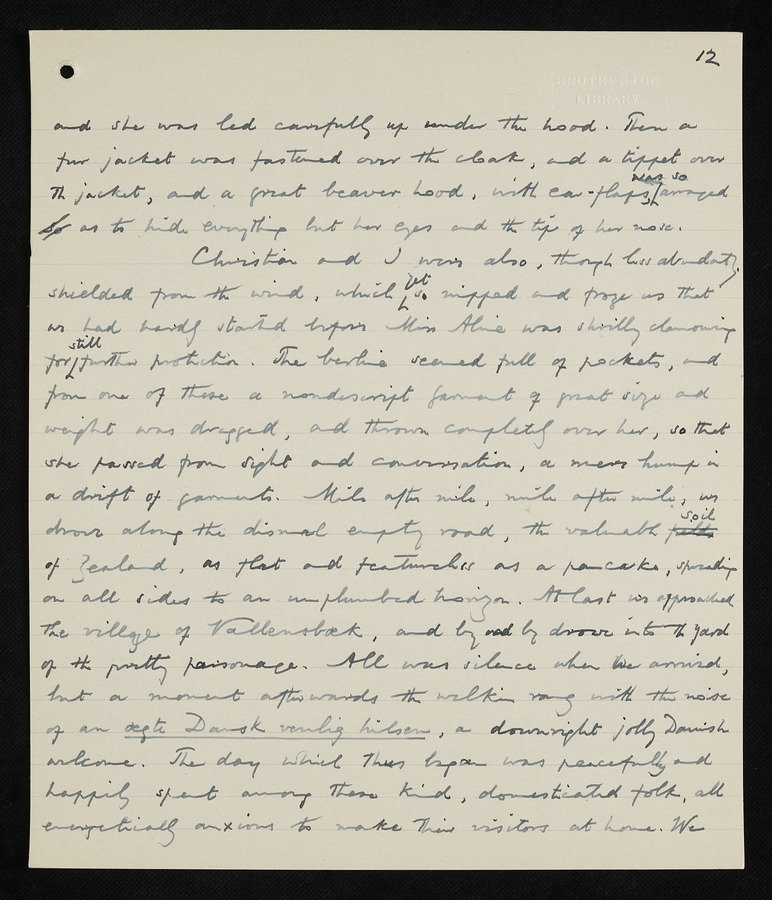 12
BROTHERTON
LIBRARY
and she was led carefully up under the hood. Then a
fur jacket was fastened over the cloak, and a tippet over
was so
th jacket, and a great beaver hood, with ear-flaps, arranged
so as to hide everything but her eyes and the tip of her nose.
Christian and I were also, though less abundantly,
yet
shielded from the wind, which so nipped and froze us that
we had hardly started before Miss Aline was shrilly clamouring
still
for further protection. The berline seemed full of pockets, and
from one of these a nondescript garment of great size and
weight was dragged, and thrown completely over her, so that
she passed from sight and conversation, a mere hump in
a drift of garments. Mile after mile, mile after mile, we
soil
drove along the dismal empty road, the valuable fields
of Zealand, as flat and featureless as a pancake, spreading
on all sides to an unplumbed horizon. At last we approached
the village of Vallensbæk, and by and by drove into the yard
of the pretty parsonage. All was silence when we arrived,
but a moment afterwards the welkin rang with the noise
of an ægte Dansk venlig hilsen, a downright jolly Danish
welcome. The day which thus began was peacefully and
happily spent among these kind, domesticated folk, all
energetically anxious to make their visitors at home. We